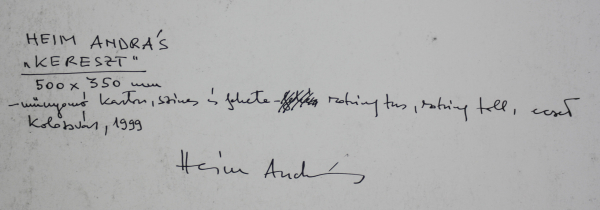 HEIM ANDRÁS
"KERESZT"
500 x 350 mm
- műnyomó karton, színes és fekete rotring tus, rotring toll, ecset
Kolozsvár, 1999
Heim András